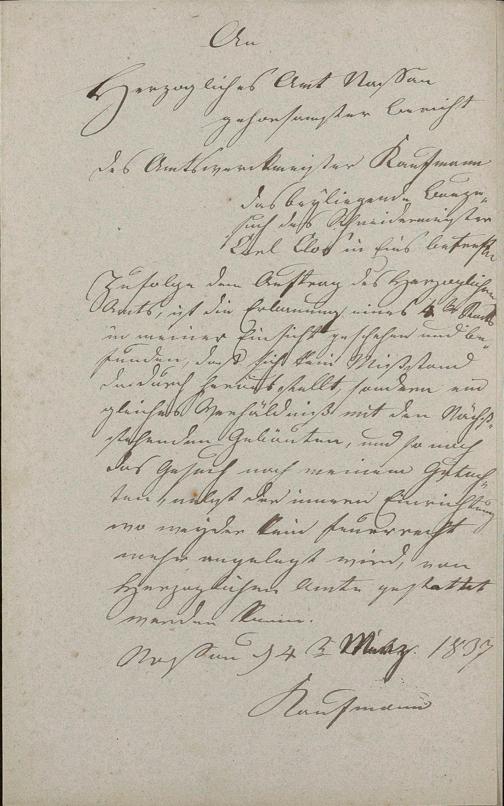 An
Herzogliches Amt Nassau
gehorsamster Bericht
des Amtswerkmeister Kaufmann
das beyliegende Bauge-
such des Schneidermeister
Carl Clos in Ems betreffen
Zufolge dem Auftrag des Herzoglichen
Amts, ist die Erbauung eines 4
in meiner Einsicht geschehen und be-
funden, daß sich kein Mißstand
dadurch herausstellt, sondern ein
gleiches Verhäldniß mit den Nächst-
stehenden Gebäuten, und so nach
das Gesuch nach meinem Gutach-
ten, nebst der innern Einrichtung
wo weyder kein Feuerrecht
mehr angelegt wird, von
Herzoglichem Amte gestattet
werden kann.
Nassau d 4 März. 1837
Kaufmann